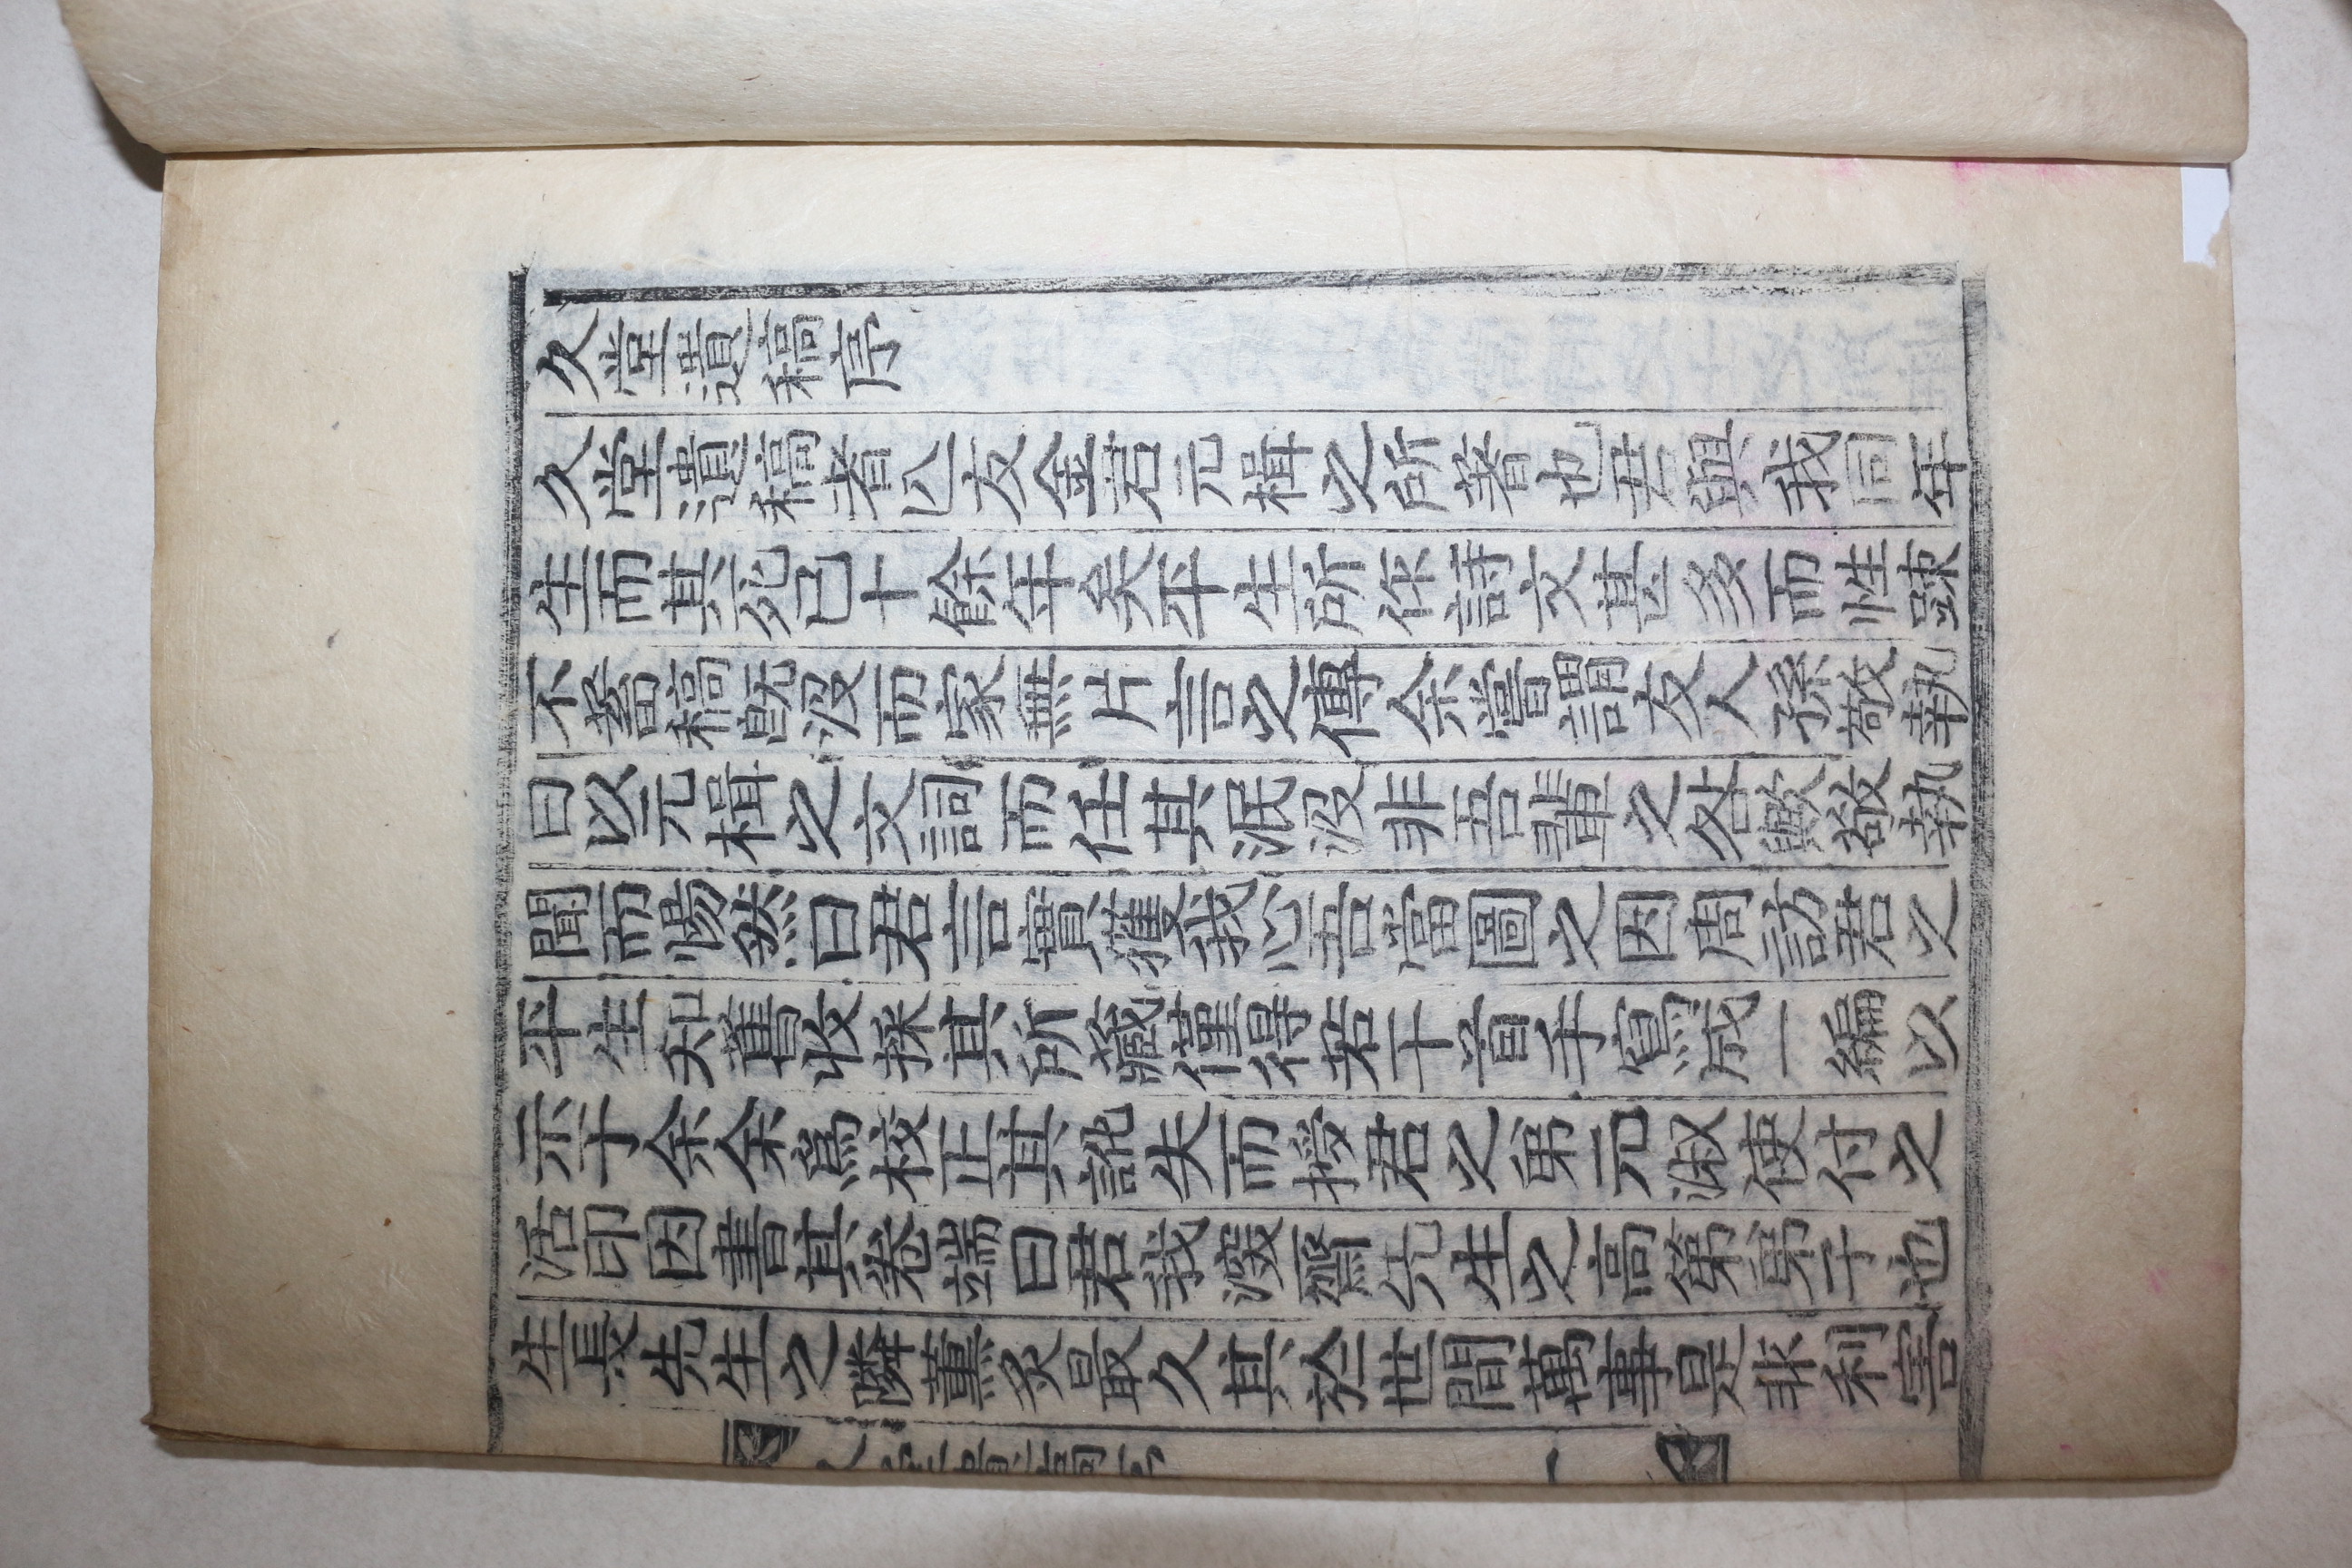 久堂遺稿序
久堂遺稿者亡友金君元楫之所著也君與我同年
生而其死已十餘年矣平生所作詩文甚多而性踈
不蓄稿旣沒而家無片言之傳余嘗謂友人孫敬執
曰以元楫之文詞而任其泯沒非吾輩之咎歟敬執
聞而惕然曰君言實獲我心吾當圖之因周訪君之
平生知舊收採其所藏僅得若干首手寫成一編以
示于余余爲校正其訛失而授君之弟元淑使付之
活印因書其卷端曰君我溪齋先生之高第弟子也
生長先生之隣薰炙最久其於世間萬事是非利害
久堂遺稿序 一